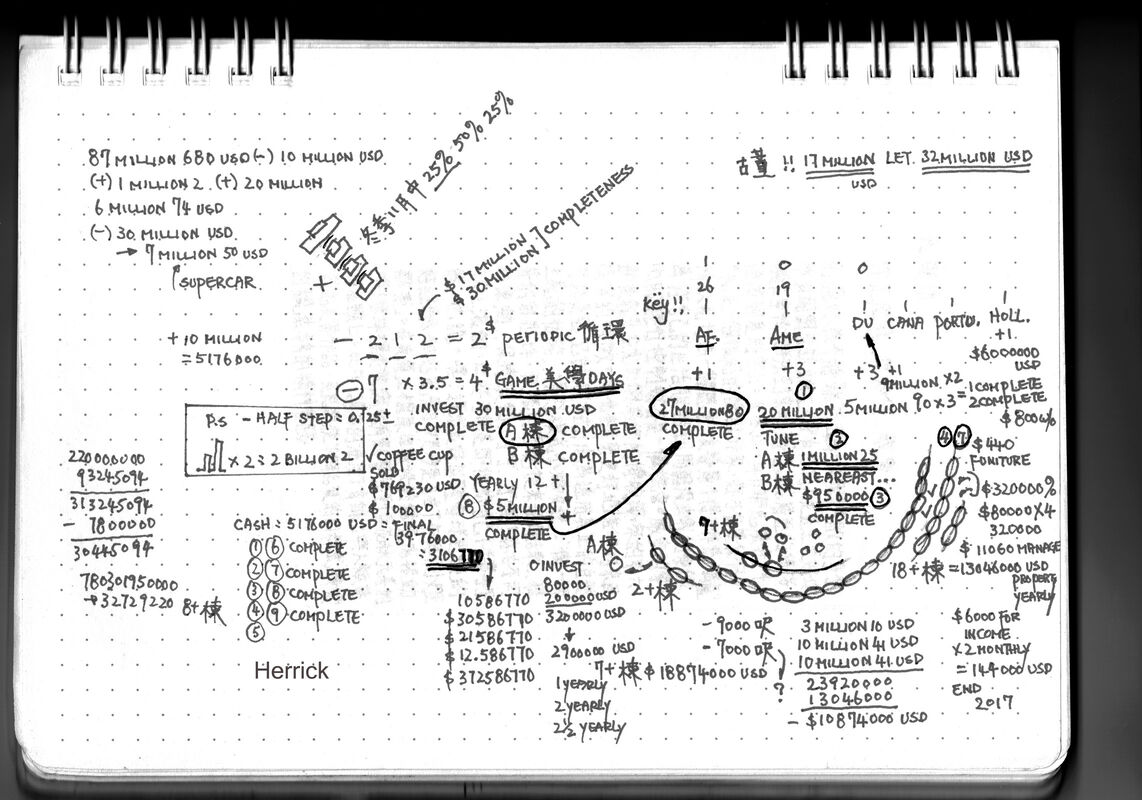 87 MILLION 680 USD (-) 10 MILLION USD
(+) 1 MILLION 2 (+) 20 MILLION
6 MILLION 74 USD
(-) 30 MILLION USD
→ 7 MILLION 50 USD
SUPERCAR
+ 10 MILLION
= 5176000
冬季11月中 25% 50% 25%
+
$ 17 MILLION
$ 30 MILLION ] COMPLETENESS
!! 17 MILLION LET 32 MILLION USD
USD
- 2 1 2 = 2$ PERIODIC 循環
- 7 × 3.5 = 4$ GAME 美學 7DAYS
P.S - HALF STEP = 0.25±
× 2 = 2 BILLION 2
INVEST 30 MILLION USD
COMPLETE A棟 COMPLETE
B棟 COMPLETE
✓ COFFEE CUP
SOLD
$ 769230 USD
$ 100000
YEARLY 12 +
⑧ $5 MILLION +
COMPLETE
KEY!!
1 0 0
26 19
1 1
AF. AME
+1 +3 +3 +1
DU CANA PORTU. HOLL.
+1
$6000000
USD
27 MILLION 80
COMPLETE
①
20 MILLION
5 MILLION 90 × 3 =
9 MILLION × 2
1 COMPLETE
2 COMPLETE
$ 800%
TUNE ②
A棟 1 MILLION 25
B棟 NEAREAST...
$ 950000 ③
COMPLETE
④ ⑦
$ 440
FONITURE
$ 320000%
$ 80000 × 4
320000
$ 11060 MANAGE
PROPERTY
YEARLY
18+棟 = 13046000 USD
220000000
93245094
313245094
- 7800000
30445094
780301950000
→ 32729220 8+棟
CASH = 5176000 USD = FINAL
3976000
= 3106770
① ⑥ COMPLETE
② ⑦ COMPLETE
③ ⑧ COMPLETE
④ ⑨ COMPLETE
⑤
Herrick
10586770
$ 30586770
$ 21586770
$ 12.586770
$ 372586770
0 INVEST
80000
200000 USD
3200000 USD
2900000 USD
1 YEARLY
2 YEARLY
2½ YEARLY
A棟
2+棟
7+棟
7+棟 $ 18874000 USD
- 9000呎
- 7000呎
?
3 MILLION 10 USD
10 MILLION 41 USD
10 MILLION 41 USD
23920000
13046000
- $10874000 USD
$6000 FOR
INCOME
× 2 MONTHLY
= 144000 USD
END
2017